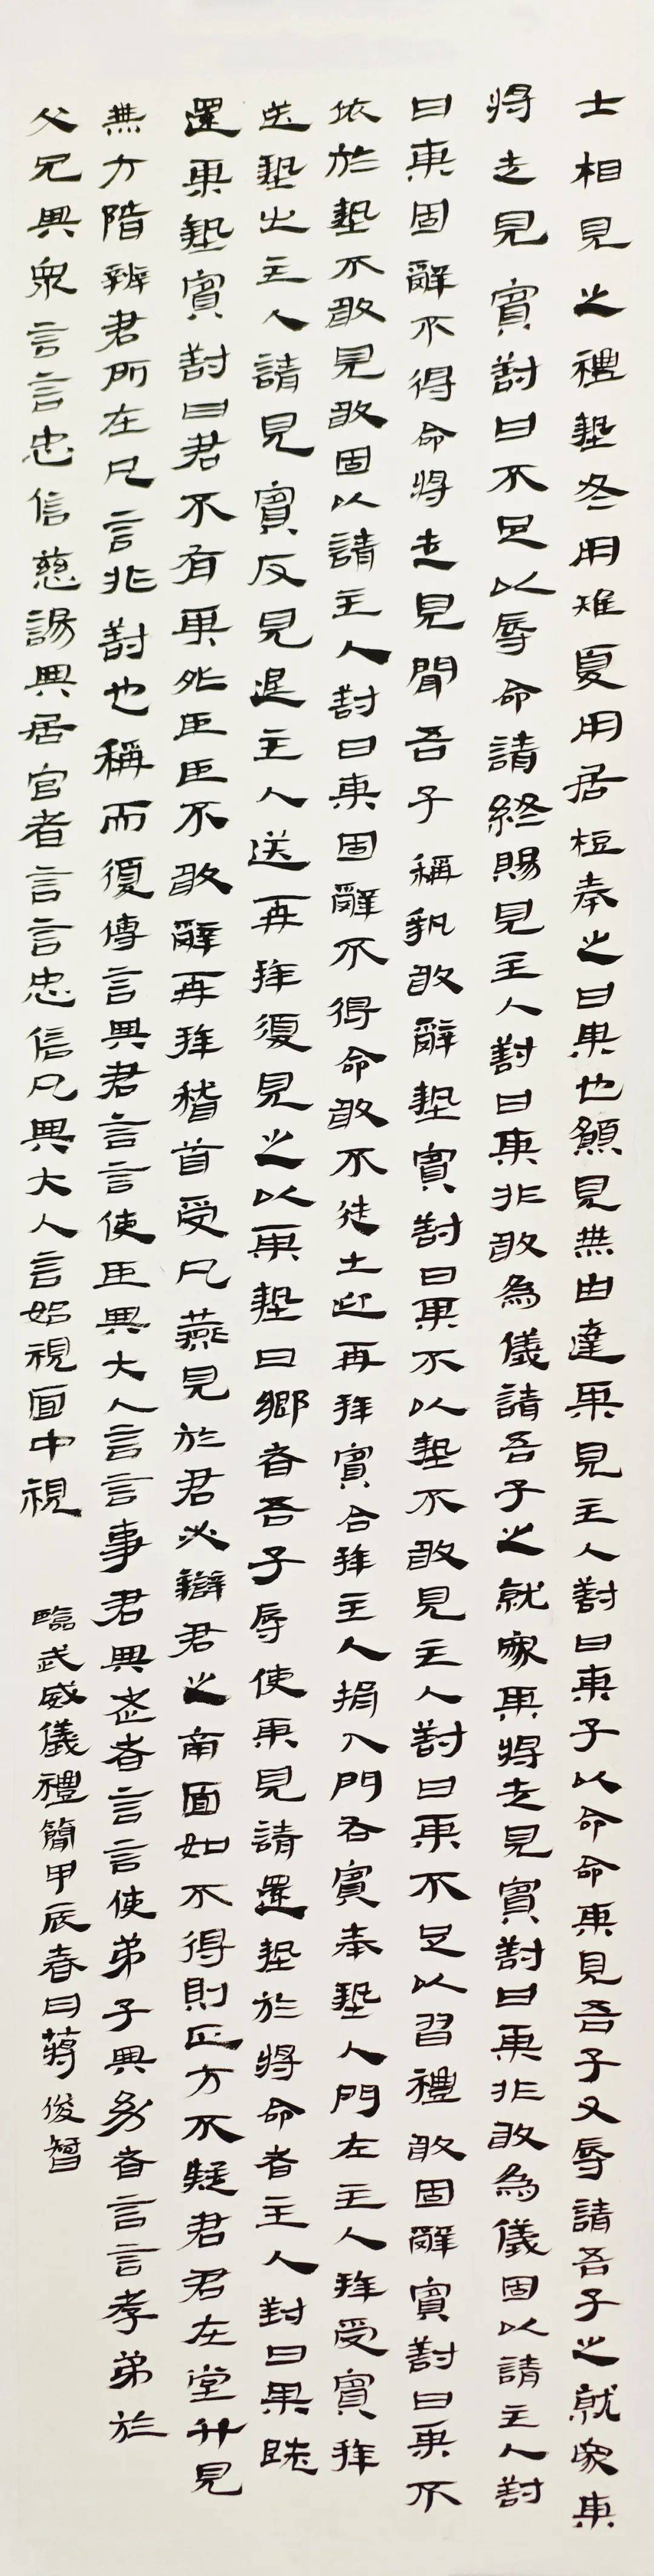 士相見之禮墊冬用雉夏用居㮛奉之曰果也願見無由達果見主人對曰果子以命命果見吾子又辱請吾子之就家果
將走見賓對曰不足以辱命請終賜見主人對曰果非敢為儀請吾子之就家果將走見賓對曰果非敢為儀固以請主人對
曰果固辭不得命將走見聞吾子稱執敢辭墊賓對曰果不以墊不敢見主人對曰果不足以習禮敢固辭賓對曰果不
依於墊不敢見敢固以請主人對曰果固辭不得命敢不從土迎再拜賓合拜主人揖入門右賓奉墊人門左主人拜受賓拜
送墊出主人請見賓反見退主人送再拜復見之以果墊曰鄉者吾子辱使果見請還墊於將命者主人對曰果既
還果墊賓對曰君不有果外臣臣不敢辭再拜稽首受凡燕見於君必辯君之南面如不得則正方不疑君君在堂升見
無方階辨君所在凡言非對也稱而復傳言與君言言使臣與大人言言事君與老者言言使弟子與幼者言言孝弟於
父兄與衆言言忠信慈諹與居官者言言忠信凡與大人言始視面中視 臨武威儀禮簡甲辰春日蔣俊智